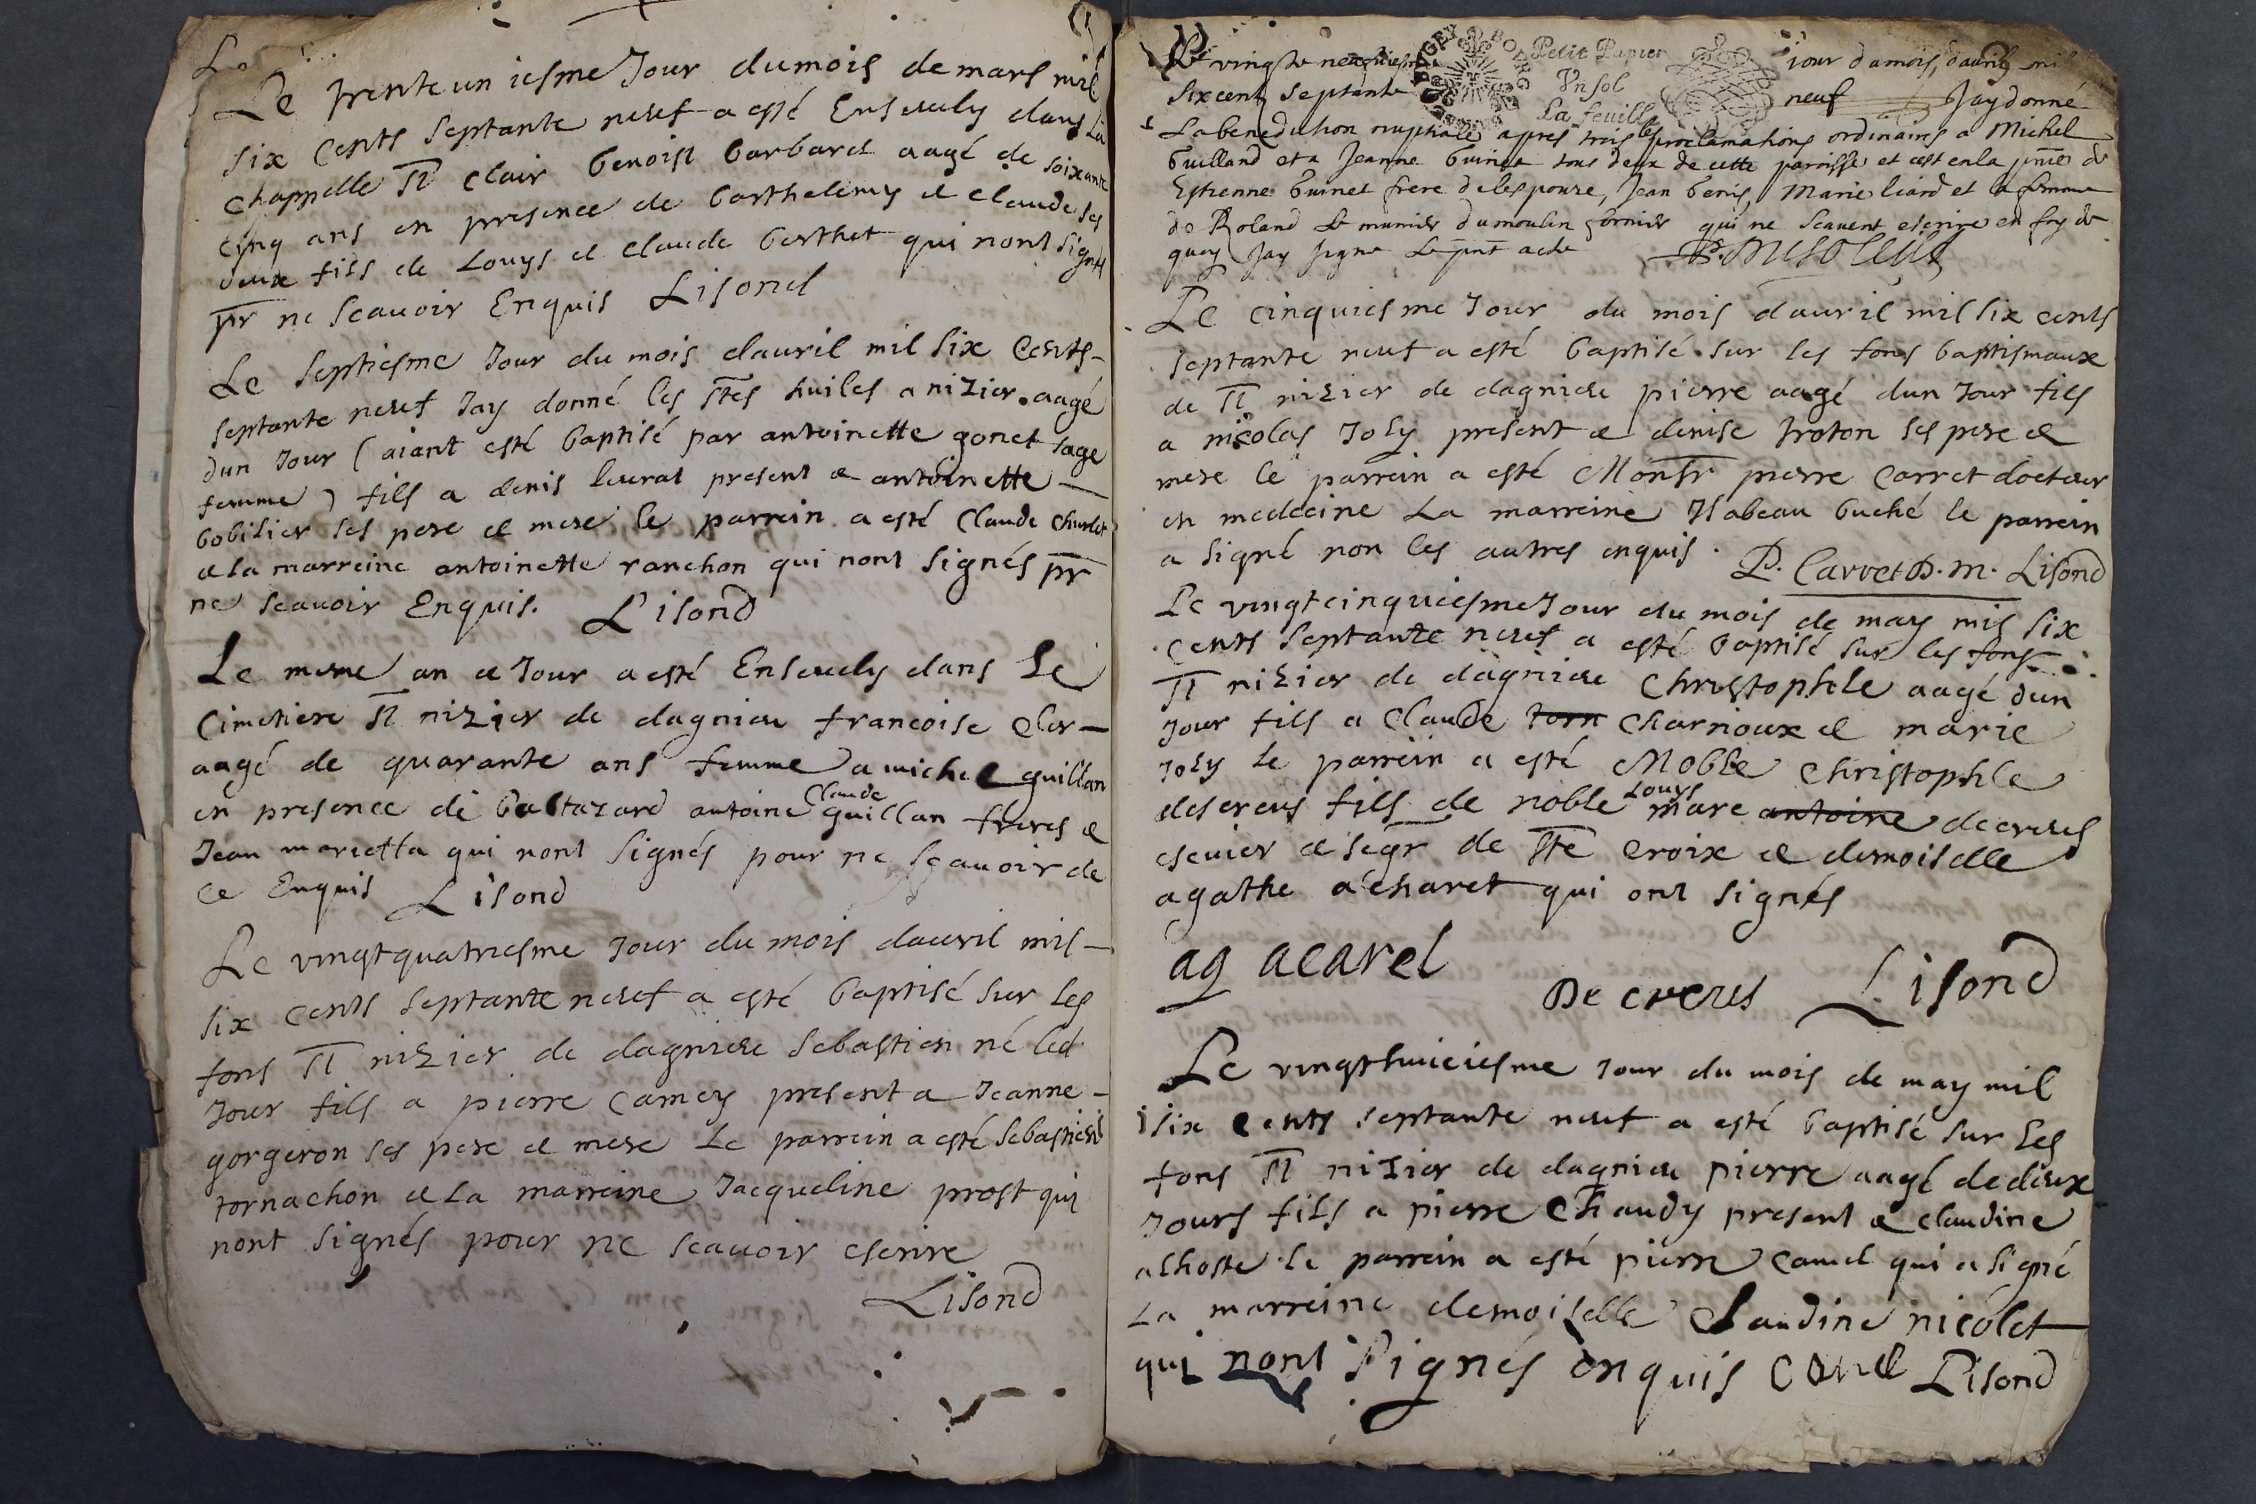 Le trente un iesme Jour du mois de mars mil
six cents septante neuf a esté Enseuely dans La
chappelle st clair benoist barbaret aagé de soixante
cinq ans en presence de barthelemy et claude ses
deux fils de Louys et claude berthet qui nont signés
pr ne scauoir Enquis Lisond
Le septiesme Jour du mois dauril mil six cents
septante neuf Jay donné les stes huiles a nizier aagé
dun Jour (aiant esté baptisé par antoinette gonet sage
femme) fils a denis liurat present et antoinette
bobilier ses pere et mere le parrein a esté claude
et la marreine antoinette ranchon qui nont signés pr
ne scauoir Enquis. Lisond
Le meme an et Jour a esté Enseuely dans Le
cimetiere st nizier de dagnieu francoise cler
aagé de quarante ans femme a michel guillan
en presence de baltazard antoine claude guillan freres et
Jean marietta qui nont signés pour ne scauoir de
ce Enquis Lisond
Le vingtquatriesme Jour du mois dauril mil
six cents septante neuf a esté baptisé sur les
fons st nizier de dagnieu sebastien né led
Jour fils a pierre camey present a Jeanne
gorgeron ses pere et mere Le parrein a esté sebastien
tornachon et La marreine Jacqueline prost qui
nont signés pour ne scauoir escrire
Lisond
Le vingte neufiesme jour du mois dauril mil
BUGEY BOURG
Petit Papier
Vn sol
La feuille
six cent septante neuf Jay donné
La benediction nuptiale apres trois les proclamations ordinaires a Michel
Guilland et a Jeanne Guinet tous deux de cette paroisse et cest en la pnce de
Estienne Guinet frere de lespouse, Jean benis, Marie liard et la femme
de Roland Le munier du moulin fornier qui ne scauent escrire en foy de
quoy Jay signe Le pnt acte
Le cinquiesme Jour du mois dauril mil six cents
septante neuf a esté baptisé sur les fons baptismaux
de st nizier de dagnieu pierre aagé dun Jour fils
a nicolas Joly present et denise troton ses pere et
mere le parrein a esté Monsr pierre carret docteur
en medecine La marreine Isabeau buché le parrein
a signé non les autres enquis. P. Carret D.m. Lisond
Le vingtcinquiesme Jour du mois de may mil six
cents septante neuf a esté baptisé sur les fons
st nizier de dagnieu christophle aagé dun
Jour fils a claude torn charnioux et marie
Joly le parrein a esté Noble christophle
descreus fils de noble Louys marc antoine decreus
escuier et segr de ste croix et demoiselle
agathe acharet qui ont signés
ag acarel
De creus Lisond
Le vingthuictiesme Jour du mois de may mil
six cents septante neuf a esté baptisé sur les
fons st nizier de dagnieu pierre aagé de deux
Jours fils a pierre chaudy present et claudine
alhoste le parrein a esté pierre camel qui a signé
La marreine demoiselle claudine nicolet
qui nont signés enquis Lisond